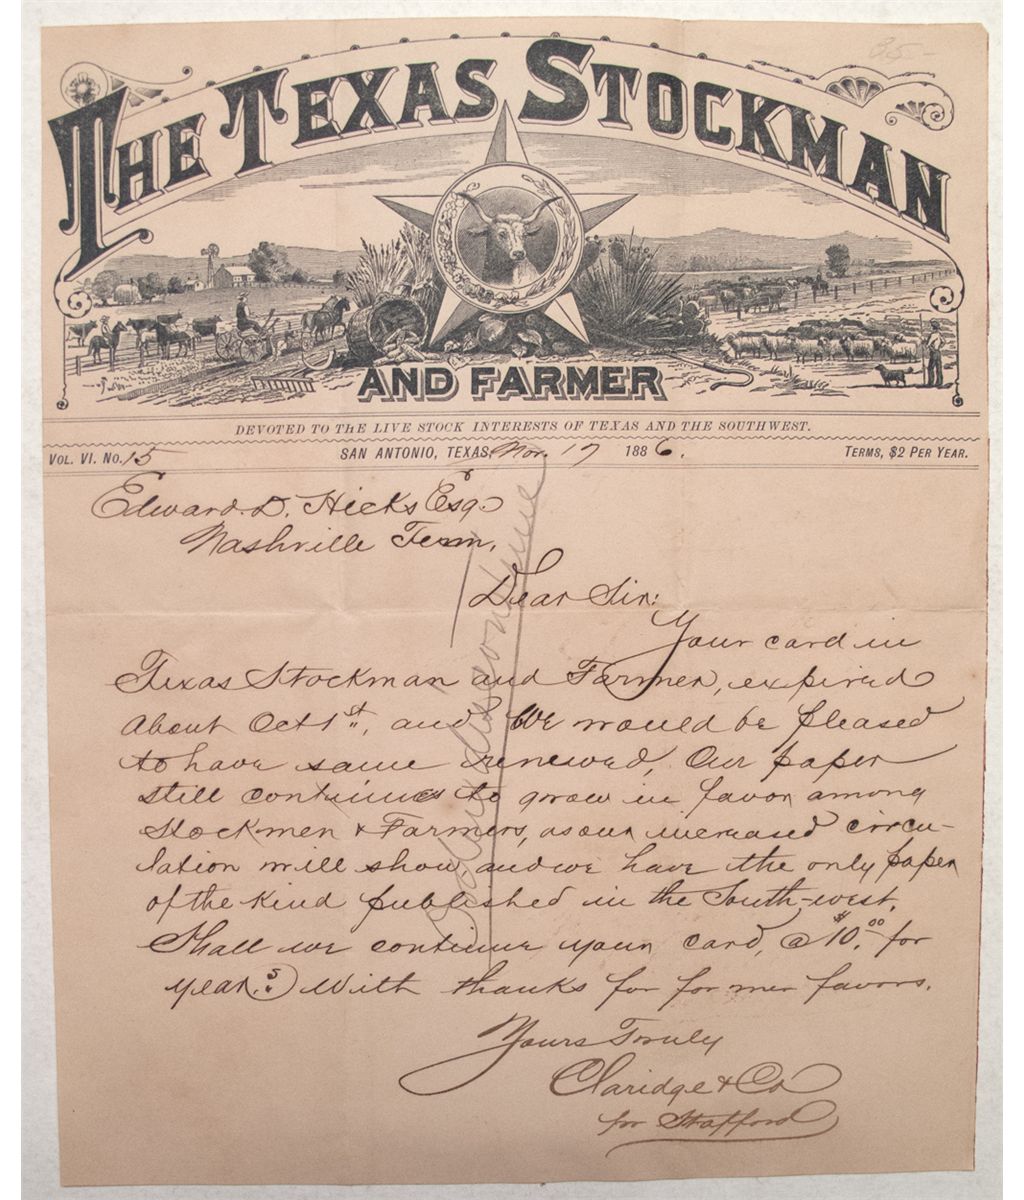 35-
THE TEXAS STOCKMAN
AND FARMER
DEVOTED TO THE LIVE STOCK INTERESTS OF TEXAS AND THE SOUTHWEST.
VOL. VI. NO. 15 SAN ANTONIO, TEXAS, Nov. 17 1886. TERMS, $2 PER YEAR.
Edward. D. Hicks Esq.
Nashville Tenn.
Dear Sir:
Your card in
Texas Stockman and Farmer, expired
about Oct 1st, and We would be pleased
to have same renewed, Our paper
still continues to grow in favor among
Stockmen & Farmers, as our increased circu-
lation will show, and we have the only paper
of the kind published in the South-west.
Shall we continue your card, @ $10.00 for
year.? With thanks for former favors.
Yours Truly
Claridge & Co
per Stafford
discontinue